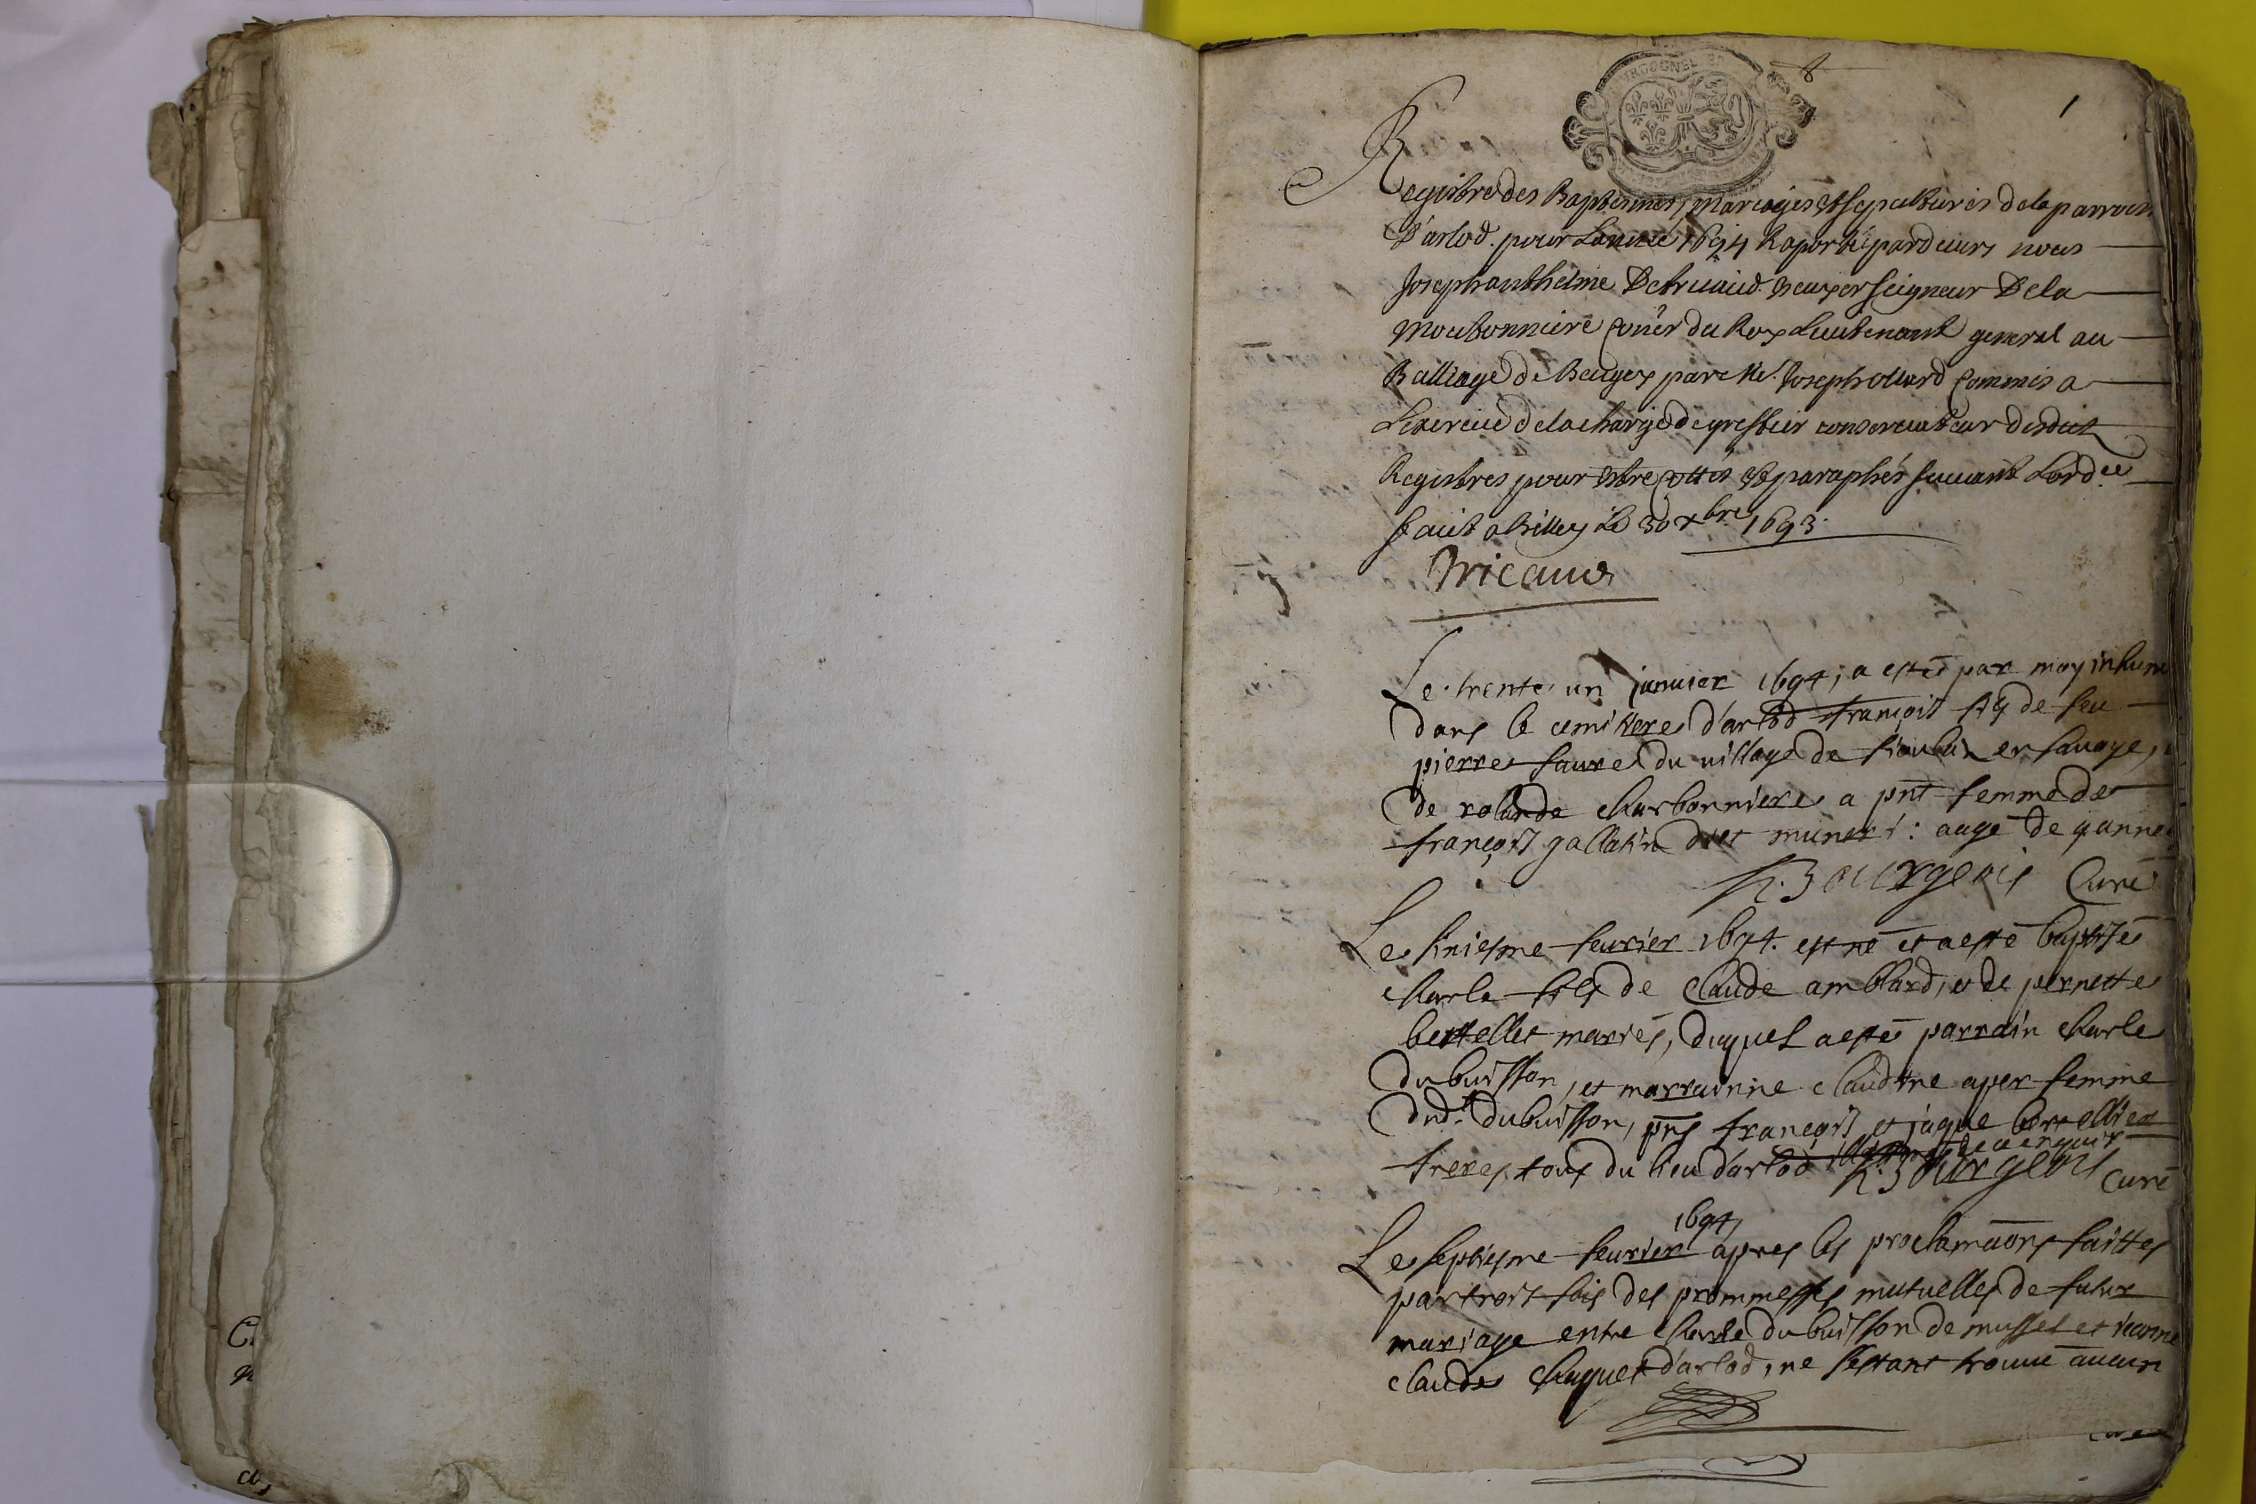 1
Registre des Baptesmes, mariages et sepultures de la parroisse
D'arlod. pour Lannee 1694 Raporté pardevers nous
Joseph anthelme Detricaud escuyer seigneur Dela
Moutonniere Coner du Roy Lieutenant general au
Balliage de Beugey par Me. Joseph Commis a
Lexercice de la charge de greffier conservateur desdict
Registres pour estre cottés et paraphés suivant Lordce
faict a Belley le 30 xbre 1693.
Tricaud
Le trente un janvier 1694, a esté par moy inhumé
dans le cemittere d'arlod françois fils de feu
pierre favre du village de en savoye,
de rolande charbonniere a pnt femme de
françois gallatin dit : aagé de 4 années
Bourgeois Curé
Le sixiesme fevrier 1694. est né et a esté baptisé
charle fils de Claude amblard, et de pernette
bertellet mariés, duquel a esté parrain charle
du buisson, et marrainne claudine apex femme
dud.t du buisson, pns françois et jaque bertellier
freres tous du lieu d'arlod illitterés de ce enquis
Bourgeois curé
1694
Le septiesme fevrier apres les proclamaons faittes
par trois fois des prommesses mutuelles de futur
mariage entre charle du buisson de mussel et
claude chaquet d'arlod, ne s'estant trouvé aucun